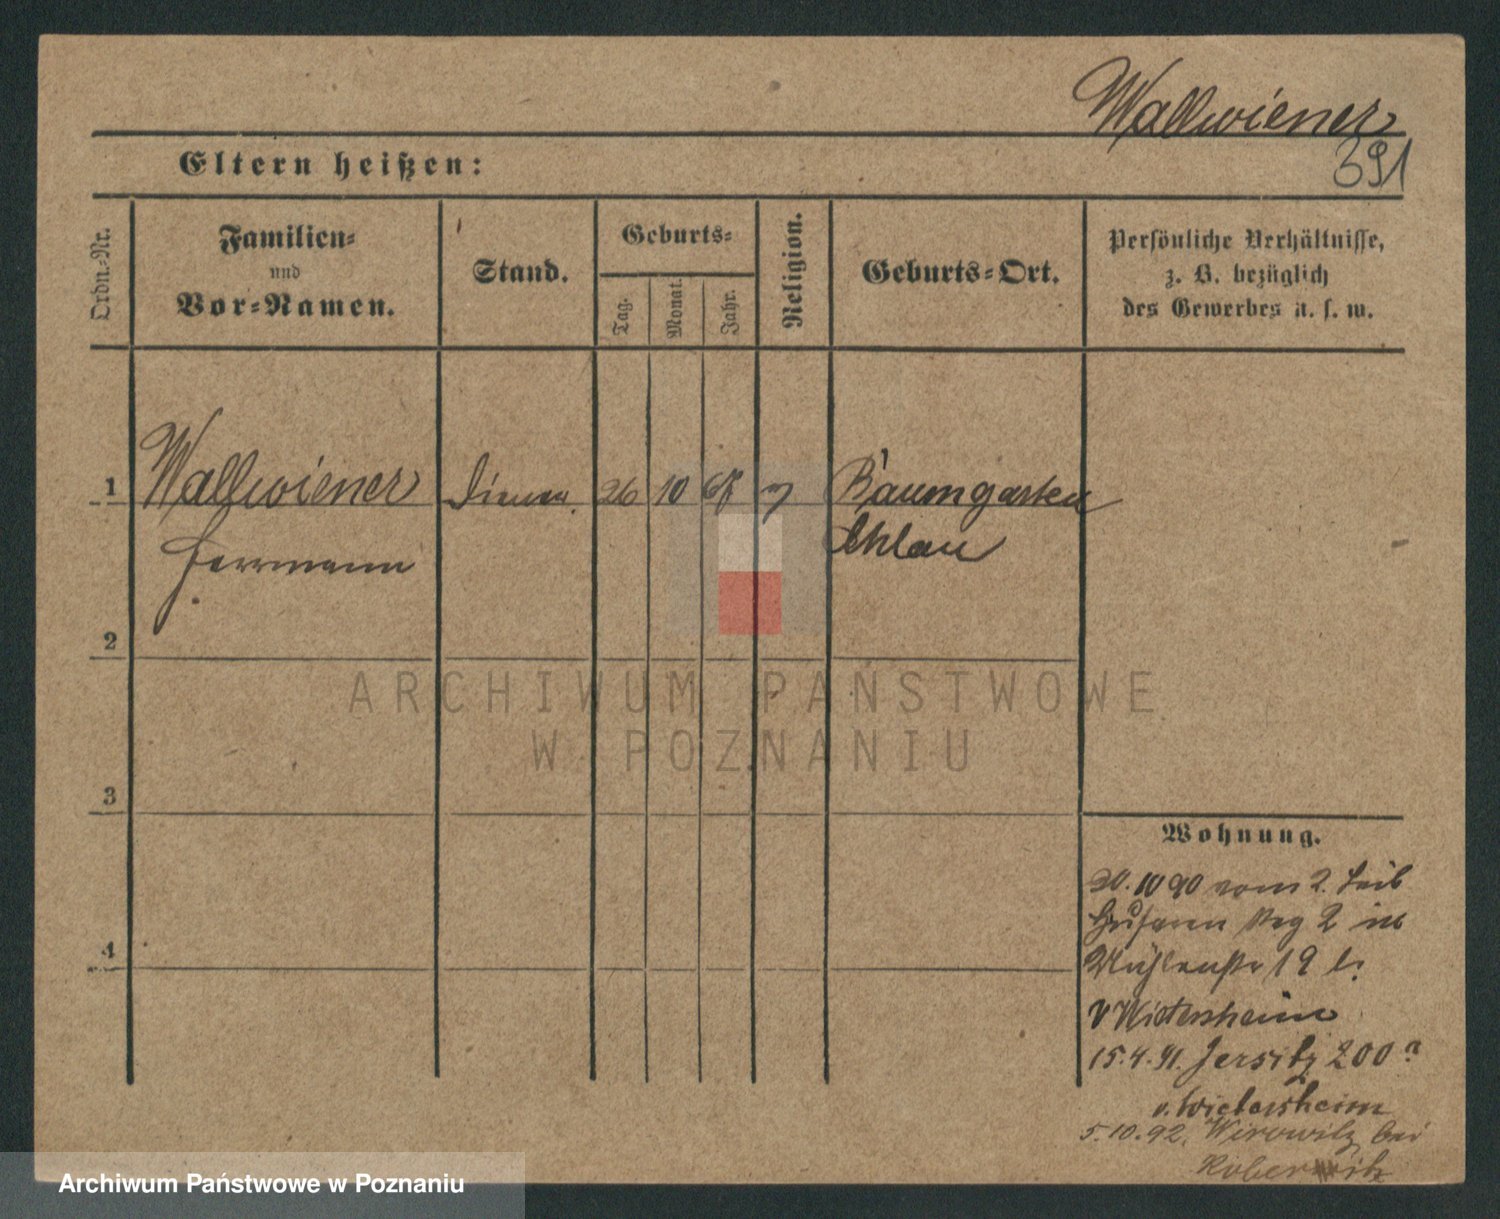 Wallwiener
391
Eltern heißen:
Ordn.-Nr.
Familien-
und
Vor-Namen.
Stand.
Geburts-
Tag.
Monat.
Jahr.
Religion.
Geburts-Ort.
Persönliche Verhältnisse,
z. B. bezüglich
des Gewerbes u. s. w.
1 Wallwiener Diener 26 10 Baumgarten
Herrmann Ohlau
2
3
4
Wohnung.
20.10 90 vom 2. Leib
Husaren Reg 2 in
Mühlenstr 19 b.
v Wietersheim
15.4.91. Jersitz 200 a
v. Wietersheim
5.10.92. bei
ARCHIWUM PAŃSTWOWE
W POZNANIU
Archiwum Państwowe w Poznaniu